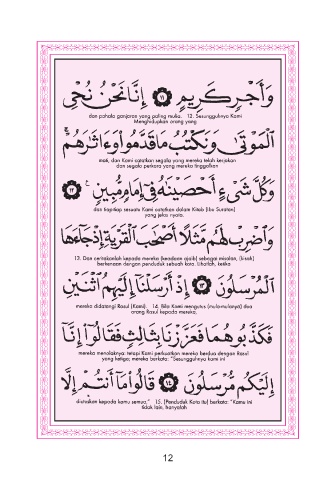 وَأَجْرٍ كَرِيمٍ ۝١١ إِنَّا نَحْنُ نُحْيِ
dan pahala ganjaran yang paling mulia. 12. Sesungguhnya Kami
Menghidupkan orang yang
الْمَوْتَىٰ وَنَكْتُبُ مَا قَدَّمُوا وَءَاثَٰرَهُمْ ۚ
mati, dan Kami catatkan segala yang mereka telah kerjakan
dan segala perkara yang mereka tinggalkan
وَكُلَّ شَىْءٍ أَحْصَيْنَٰهُ فِىٓ إِمَامٍ مُّبِينٍ ۝١٢
dan tiap-tiap sesuatu Kami catatkan dalam Kitab (Ibu Suratan)
yang jelas nyata.
وَاضْرِبْ لَهُم مَّثَلًا أَصْحَٰبَ الْقَرْيَةِ إِذْ جَآءَهَا
13. Dan ceritakanlah kepada mereka (keadaan ajaib) sebagai misalan, (kisah)
berkenaan dengan penduduk sebuah kota, titurlah, ketika
الْمُرْسَلُونَ ۝١٣ إِذْ أَرْسَلْنَآ إِلَيْهِمُ اثْنَيْنِ
mereka didatangi Rasul (Kami). 14. Bila Kami mengutus (mula-mulanya) dua
orang Rasul kepada mereka,
فَكَذَّبُوهُمَا فَعَزَّزْنَا بِثَالِثٍ فَقَالُوٓا إِنَّآ
mereka menolaknya; tetapi Kami perkuatkan mereka berdua dengan Rasul
yang ketiga; mereka berkata: "Sesungguhnya kami ini
إِلَيْكُم مُّرْسَلُونَ ۝١٤ قَالُوا مَآ أَنتُمْ إِلَّا
diutuskan kepada kamu semua," 15. (Penduduk Kota itu) berkata: "Kamu ini
tidak lain, hanyalah
12